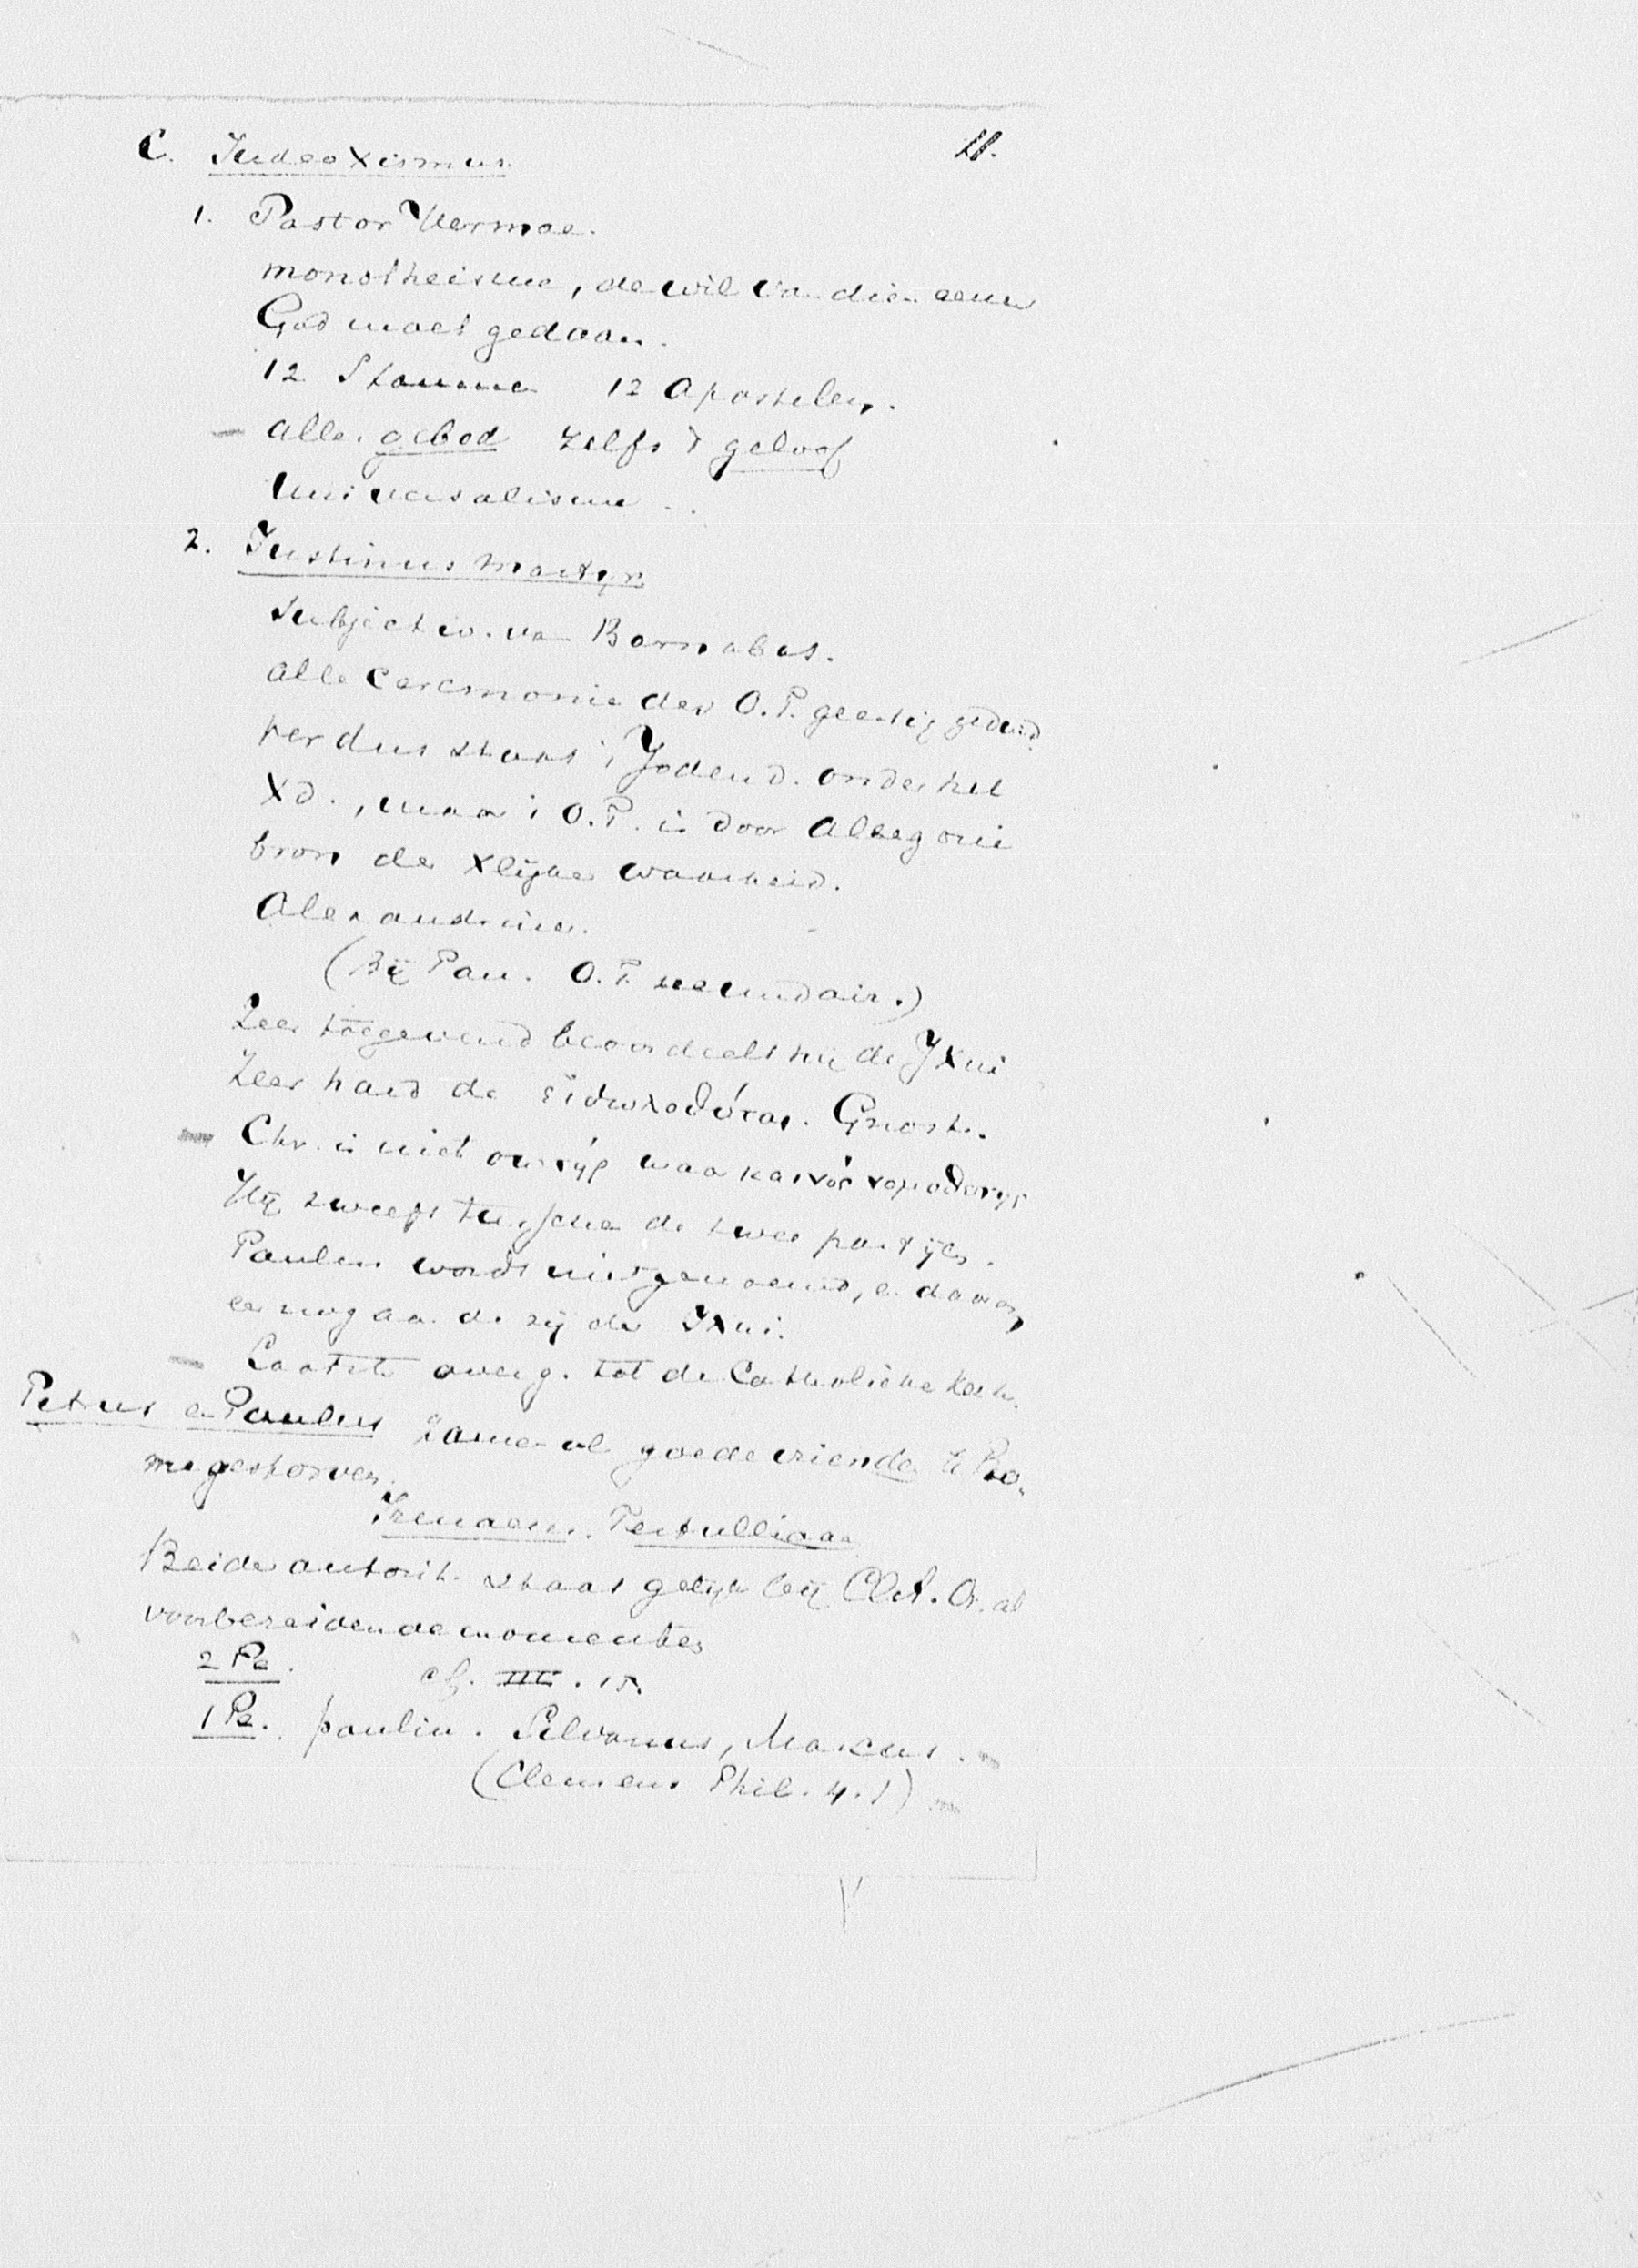 C. Judeo Xismus. 11.
1. Pastor Hermae.
monotheisme, de wil van dien eenen
God moet gedaan.
12 Stammen 12 Apostelen.
- alles gebod zelfs 't geloof
Universalisme..
2. Justinus Martyr.
Subjectiv. van Barnabas.
alle ceremonie des O.T. geestig geduid.
per dus staat 't Jodend. onder het
Xd., maar 't O.T. is door Allegorie
bron der Xlijke waarheid.
Alexandrines.
(Bij Pau. O.T. secundair.)
Zeer toegevend beoordeelt hij de JXni
Zeer hard de εἰδωλοθύται. Gnost.
- Chr. is niet σωτήρ maar καινός νομοθέτης
Hij zweeft tusschen de twee partijen.
Paulus wordt niet genoemd, en daarom
er nog aan de zij der JXni.
- Laatste overg. tot de Catholieke Kerk.
Petrus en Paulus zamen als goede vrienden te Ro-
me gestorven.
Irenaeus. Tertulliaan
Beider autorit. staat gelijk bij Cl. A. Or. als
voorbereidende momenten
2 Pe. cf. III. 15.
1 Pe. paulin. Silvanus, Marcus. -
(Clemens Phil. 4. 1) -